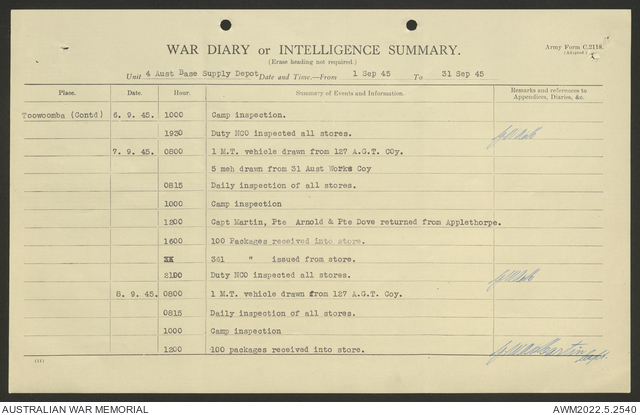 Army Form C.2118.
(Adapted.)
WAR DIARY or INTELLIGENCE SUMMARY.
(Erase heading not required.)
Unit 4 Aust Base Supply Depot Date and Time.—From 1 Sep 45 To 31 Sep 45
Place. Date. Hour. Summary of Events and Information. Remarks and references to Appendices, Diaries, &c.
Toowoomba (Contd) 6. 9. 45. 1000 Camp inspection.
1930 Duty NCO inspected all stores.
7. 9. 45. 0800 1 M.T. vehicle drawn from 127 A.G.T. COy.
5 meh drawn from 31 Aust Works Coy
0815 Daily inspection of all stores.
1000 Camp inspection
1200 Capt Martin, Pte Arnold & Pte Dove returned from Applethorpe.
1600 100 Packages received into store.
361 " issued from store.
2100 Duty NCO inspected all stores.
8. 9. 45. 0800 1 M.T. vehicle drawn from 127 A.G.T. Coy.
0815 Daily inspection of all stores.
1000 Camp inspection
1200 100 packages received into store.
AUSTRALIAN WAR MEMORIAL AWM2022.5.2540